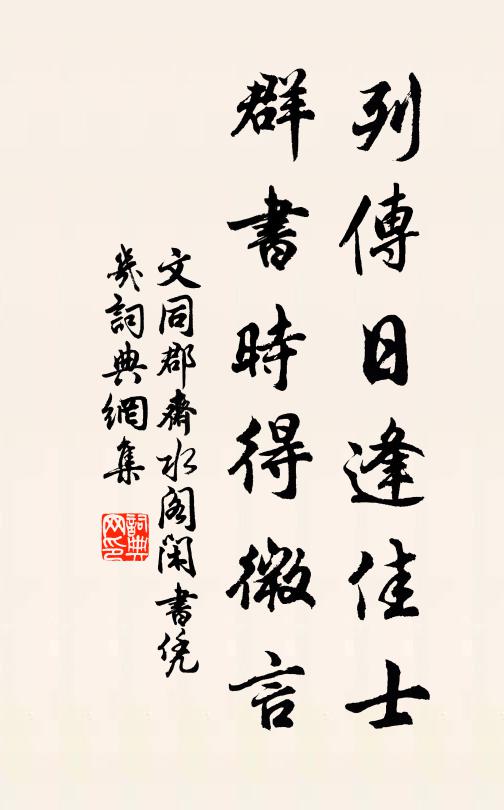 列傳日逢佳士
群書時得微言
文同郡齋水阁闲書凭
几詞典網集
詞典网印